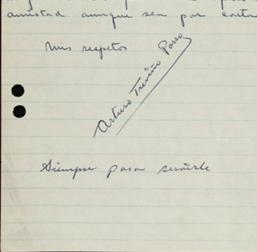 amistad aunque sea por corto
Mis respetos
Arturo Treviño
Siempre para servirle